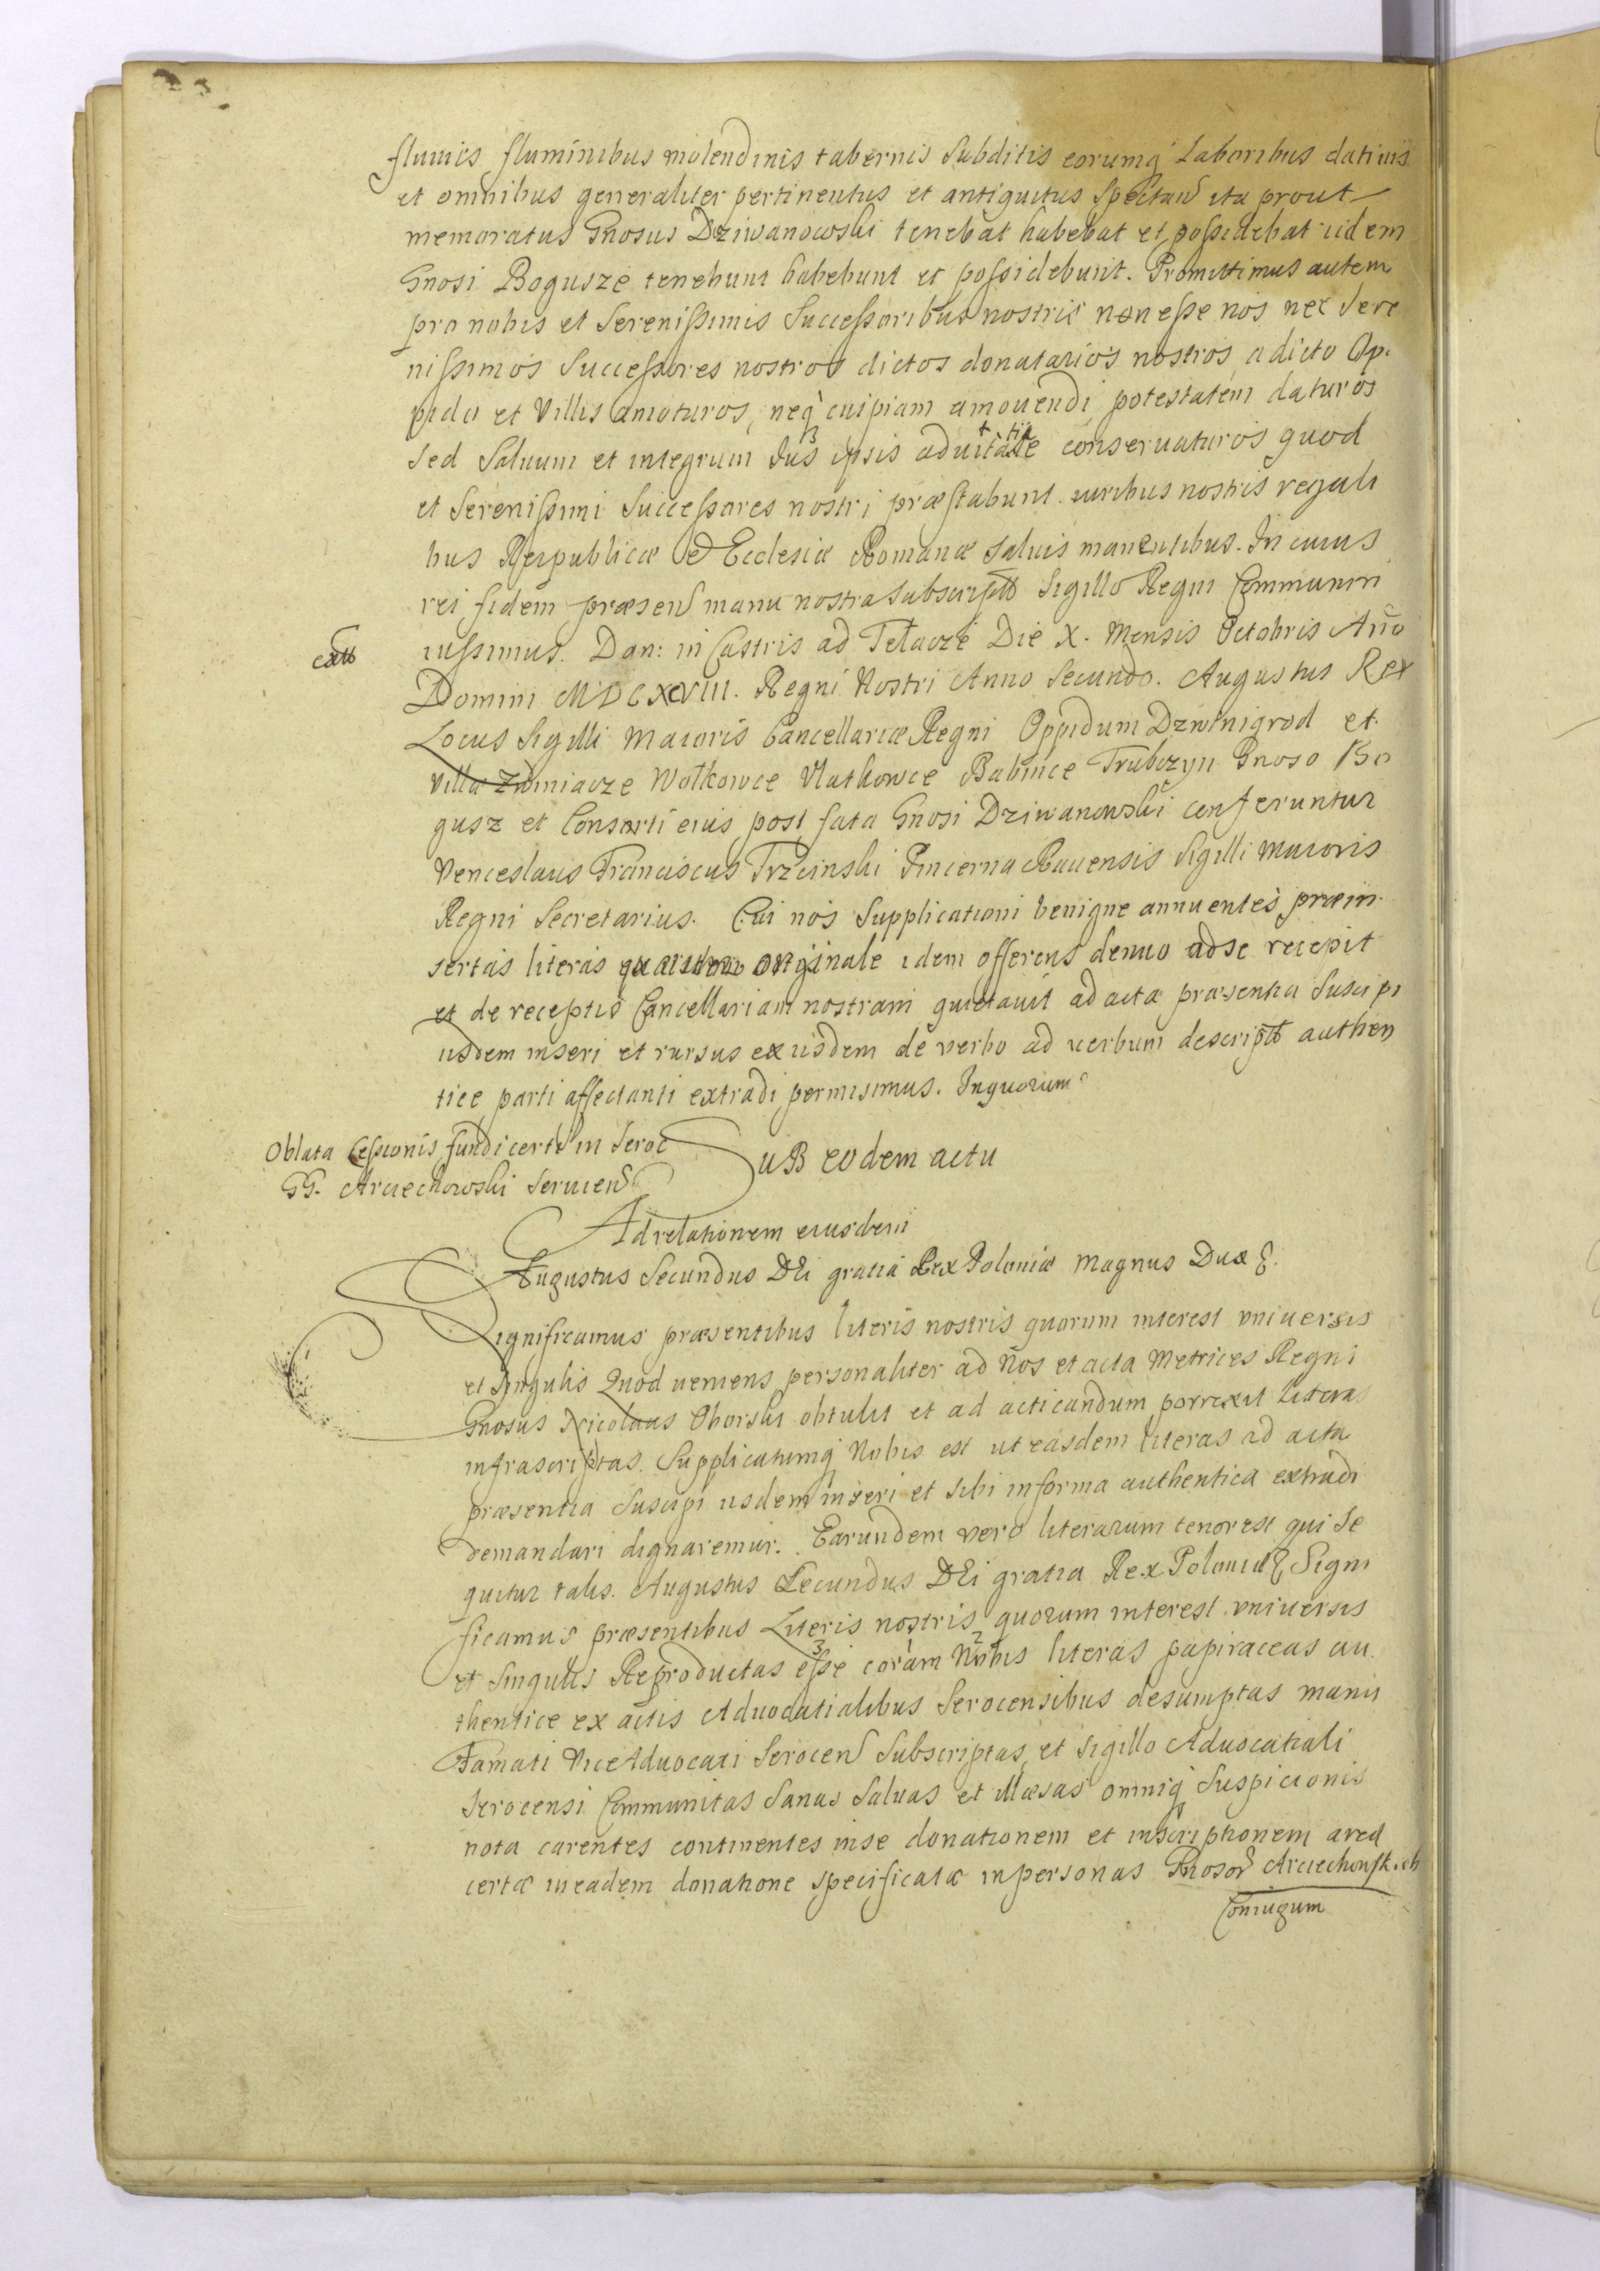 fluuiis fluminibus molendinis tabernis Subditis eorumq Laboribus datiuis
et omnibus generaliter pertinentus et antiquitus Spectan ita prout
memoratus Gnosus Dziwanowski tenebat habebat et possidebat iidem
Gnosi Bogusze tenebunt habebunt et possidebunt. Promittimus autem
pro nobis et Serenissimis Successoribus nostris non esse nos nec Sere
nissimos Successores nostros dictos donatarios nostros a dicto Op-
pido et Villis amoturos, neq cuipiam amouendi potestatem daturos
Sed Saluum et integrum Jus ipsis conseruaturos quod
et Serenissimi Successores nostri præstabunt iuribus nostris regali
bus Reipublicæ et Ecclesiæ Romanæ saluis manentibus. In cuius
rei fidem præsen manu nostra subscript Sigillo Regni Communiri
iussimus. Dan: in Castris ad Tełacze Die X. Mensis Octobris Año
Domini MDCXCVIII. Regni Nostri Anno Secundo. Augustus Rex
Locus Sigilli Maioris Cancellariæ Regni Oppidum Dzwinigrod et
Villa Zwiniacze Wołkowce Vlaskowce Babince Trubczyn Gnoso Bo
gusz et Consorti eius post fata Gnosi Dziwanowski conferuntur
Venceslaus Franciscus Trzcinski Pincerna Rauensis Sigilli Maioris
Regni Secretarius. Cui nos Supplicationi benigne annuentes præin-
sertas literas quarum originale idem offerens denuo ad se recepit
et de receptis Cancellariam nostram quietauit ad acta præsentia Suscipi
iisdem inseri et rursus ex iisdem de verbo ad verbum descript authen
tice parti affectanti extradi permisimus. In quorum
Oblata Cessionis fundi certi in Seroc
GG. Arciechowski Seruien
Sub eodem actu
Ad relationem eiusdem
Augustus Secundus DEi gratia Rex Poloniæ Magnus Dux &.
Significamus præsentibus literis nostris quorum interest vniuersis
et singulis Quod veniens personaliter ad Nos et acta Metrices Regni
Gnosus Nicolaus Oborski obtulit et ad acticandum porrexit Literas
infrascriptas. Supplicatumq Nobis est ut easdem literas ad acta
præsentia Suscipi iisdem inseri et sibi in forma authentica extradi
demandari dignaremur. Earundem vero literarum tenor est qui Se
quitur talis. Augustus Secundus DEi gratia Rex Poloniæ & Signi
ficamus præsentibus Literis nostris quorum interest vniuersis
et Singulis Reproductas esse coram Nobis literas papiraceas au
thentice ex actis Aduocatialibus Serocensibus desumptas manu
Famati ViceAduocati Serocen Subscriptas et sigillo Aduocatiali
Serocensi Communitas Sanas Saluas et illæsas omniq Suspicionis
nota carentes continentes in se donationem et inscriptionem areæ
certæ in eadem donatione specificatæ in personas Gnosor Arciechowskich
Coniugum